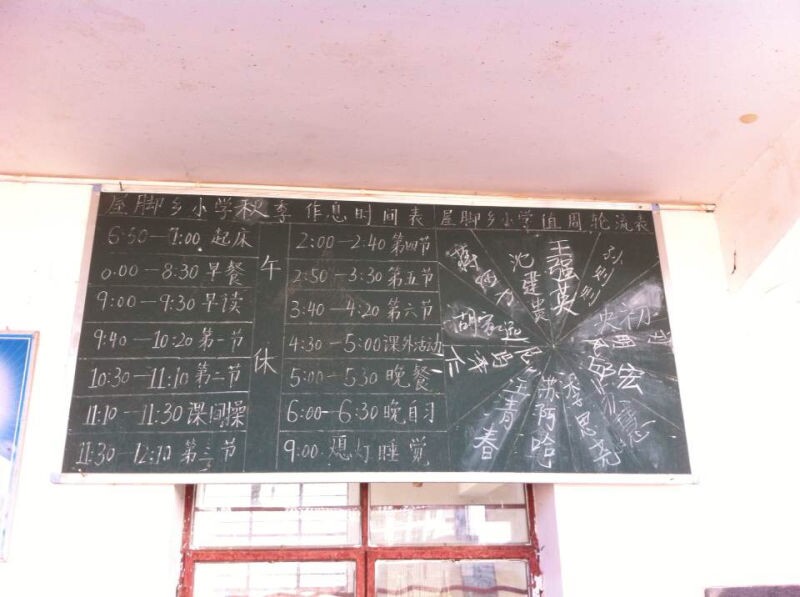 屋脚乡小学秋季作息时间表
屋脚乡小学值周轮流表
6:50—7:00 起床
0:00—8:30 早餐
9:00—9:30 早读
9:40—10:20 第一节
10:30—11:10 第二节
11:10—11:30 课间操
11:30—12:10 第三节
午休
2:00—2:40 第四节
2:50—3:30 第五节
3:40—4:20 第六节
4:30—5:00 课外活动
5:00—5:30 晚餐
6:00—6:30 晚自习
9:00 熄灯睡觉
池建贵
王孟英
李思尧
苏阿哈
汪青春